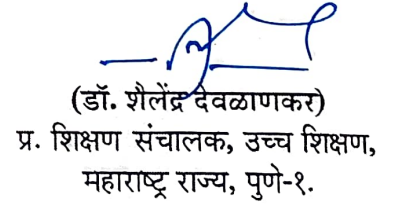 (डॉ. शैलेंद्र देवळाणकर)
प्र. शिक्षण संचालक, उच्च शिक्षण,
महाराष्ट्र राज्य, पुणे-१.